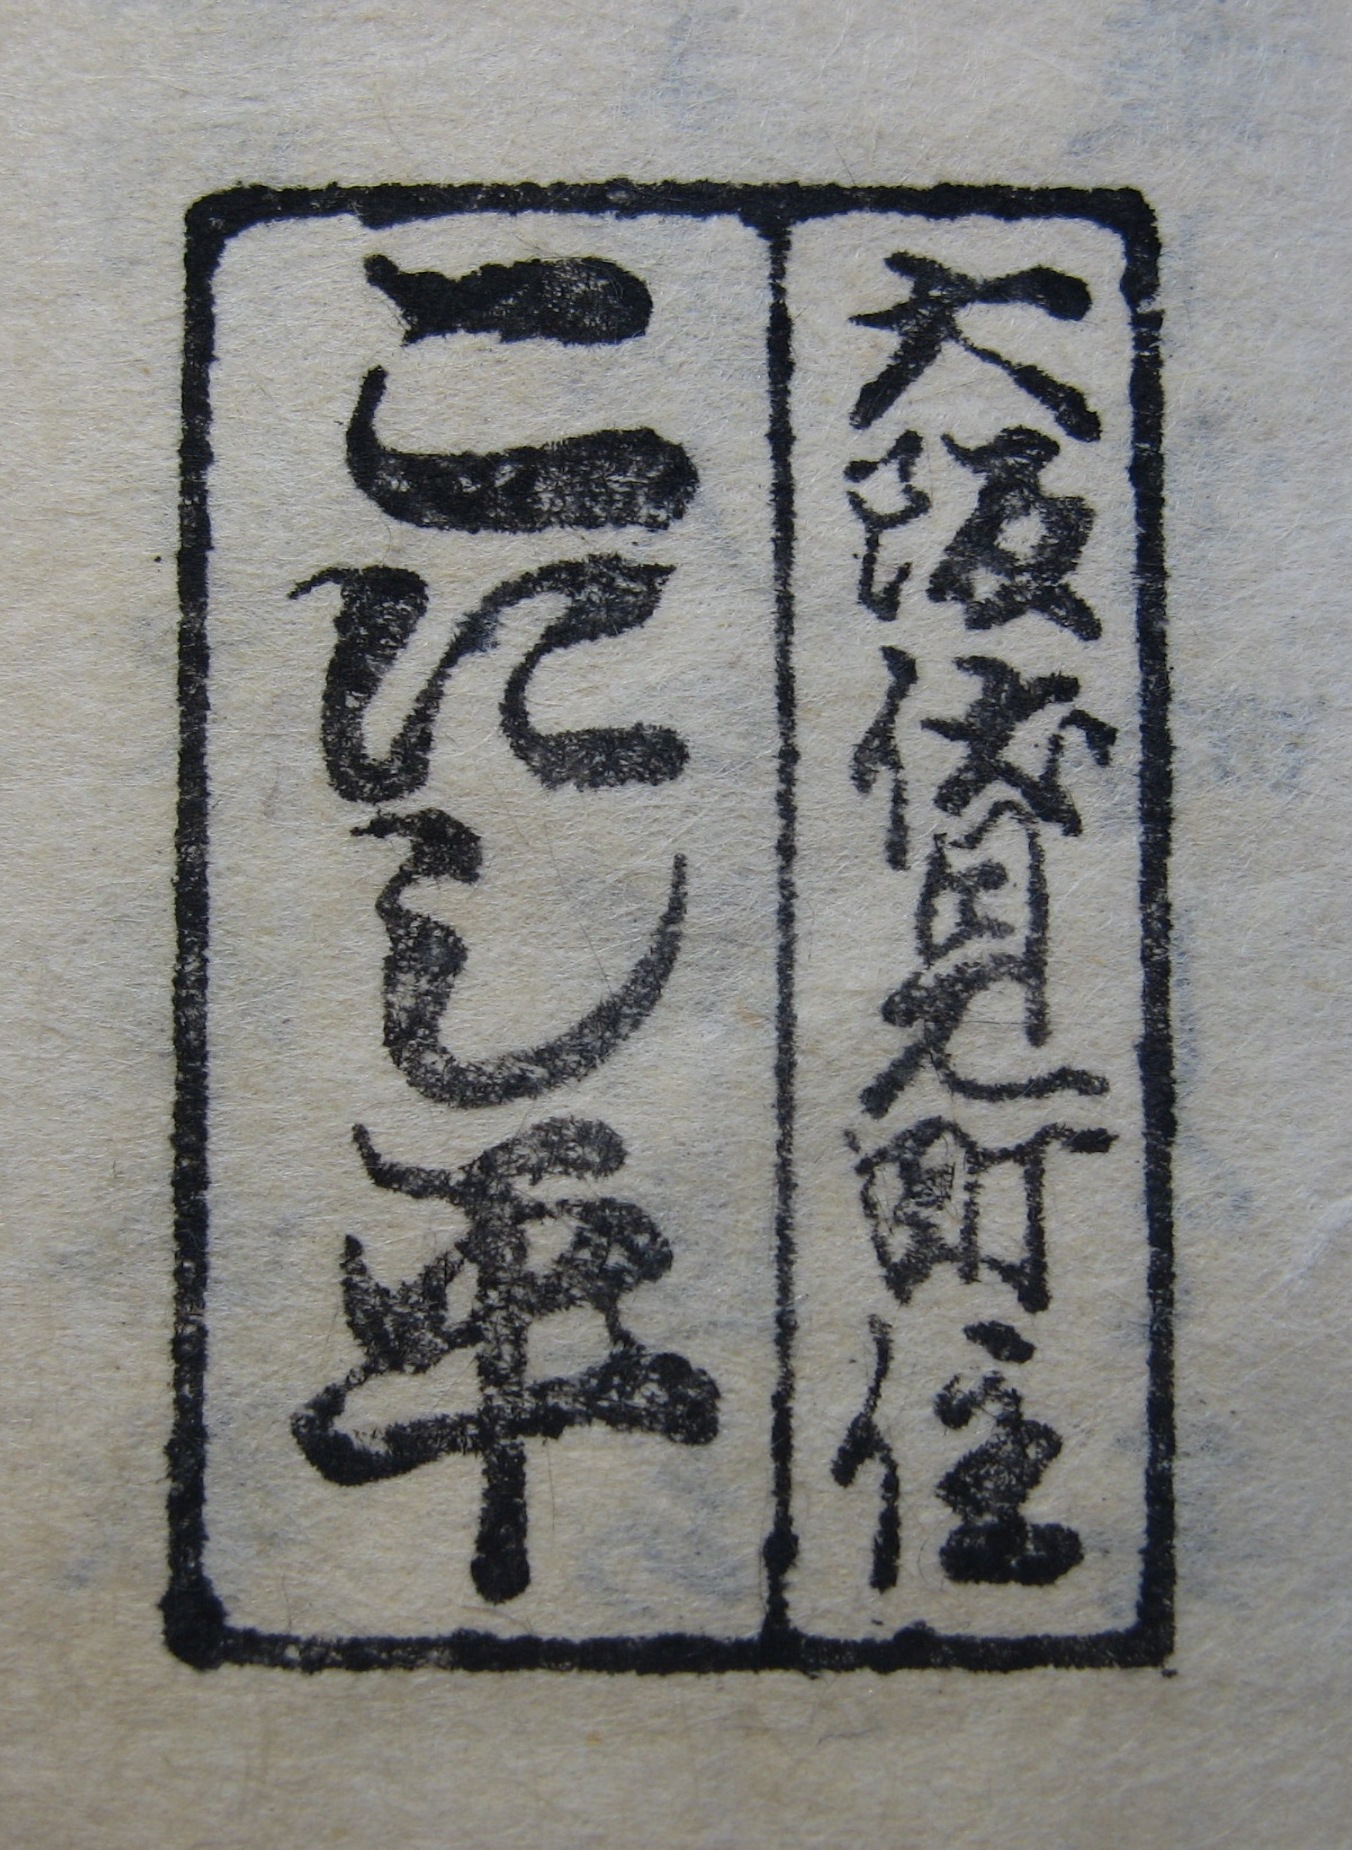 大阪伏見町住
こにし平